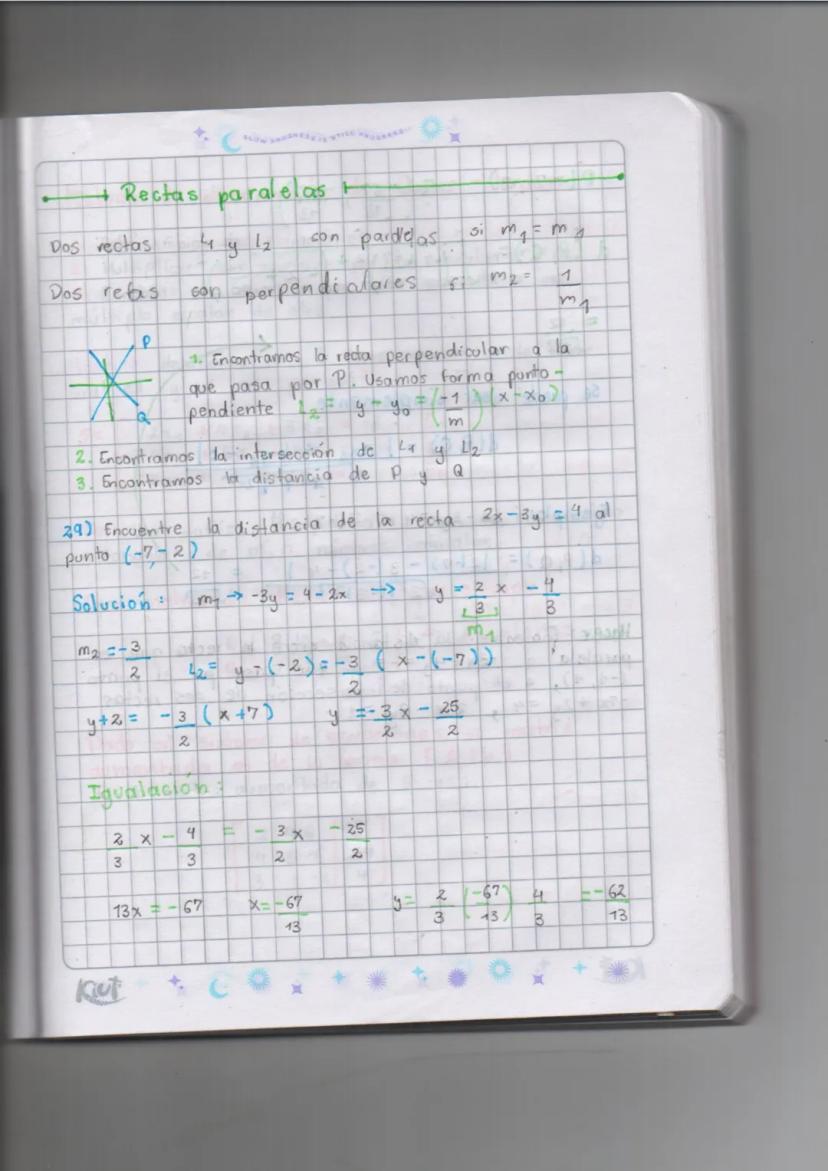 SLOW PROGRESS IS STILL PROGRESS
Rectas paralelas
Dos rectas L1 y L2 son paralelas si m1 = m1
Dos retas son perpendiculares si m2 = 1/m1
P
Q
1. Encontramos la recta perpendicular a la
que pasa por P. Usamos forma punto-
pendiente L2 = y - y0 = (-1/m)(x-x0)
2. Encontramos la intersección de L1 y L2
3. Encontramos la distancia de P y Q
29) Encuentre la distancia de la recta 2x-3y = 4 al
punto (-7,-2)
Solución: m1 → -3y = 4-2x → y = 2/3 x - 4/3
m1
m2 = -3/2 L2 = y-(-2) = -3/2 (x-(-7))
y+2 = -3/2 (x+7) y = -3/2 x - 25/2
Igualación:
2/3 x - 4/3 = -3/2 x - 25/2
13x = -67 x = -67/13 y = 2/3 (-67/13) 4/3 = -62/13
Kiut